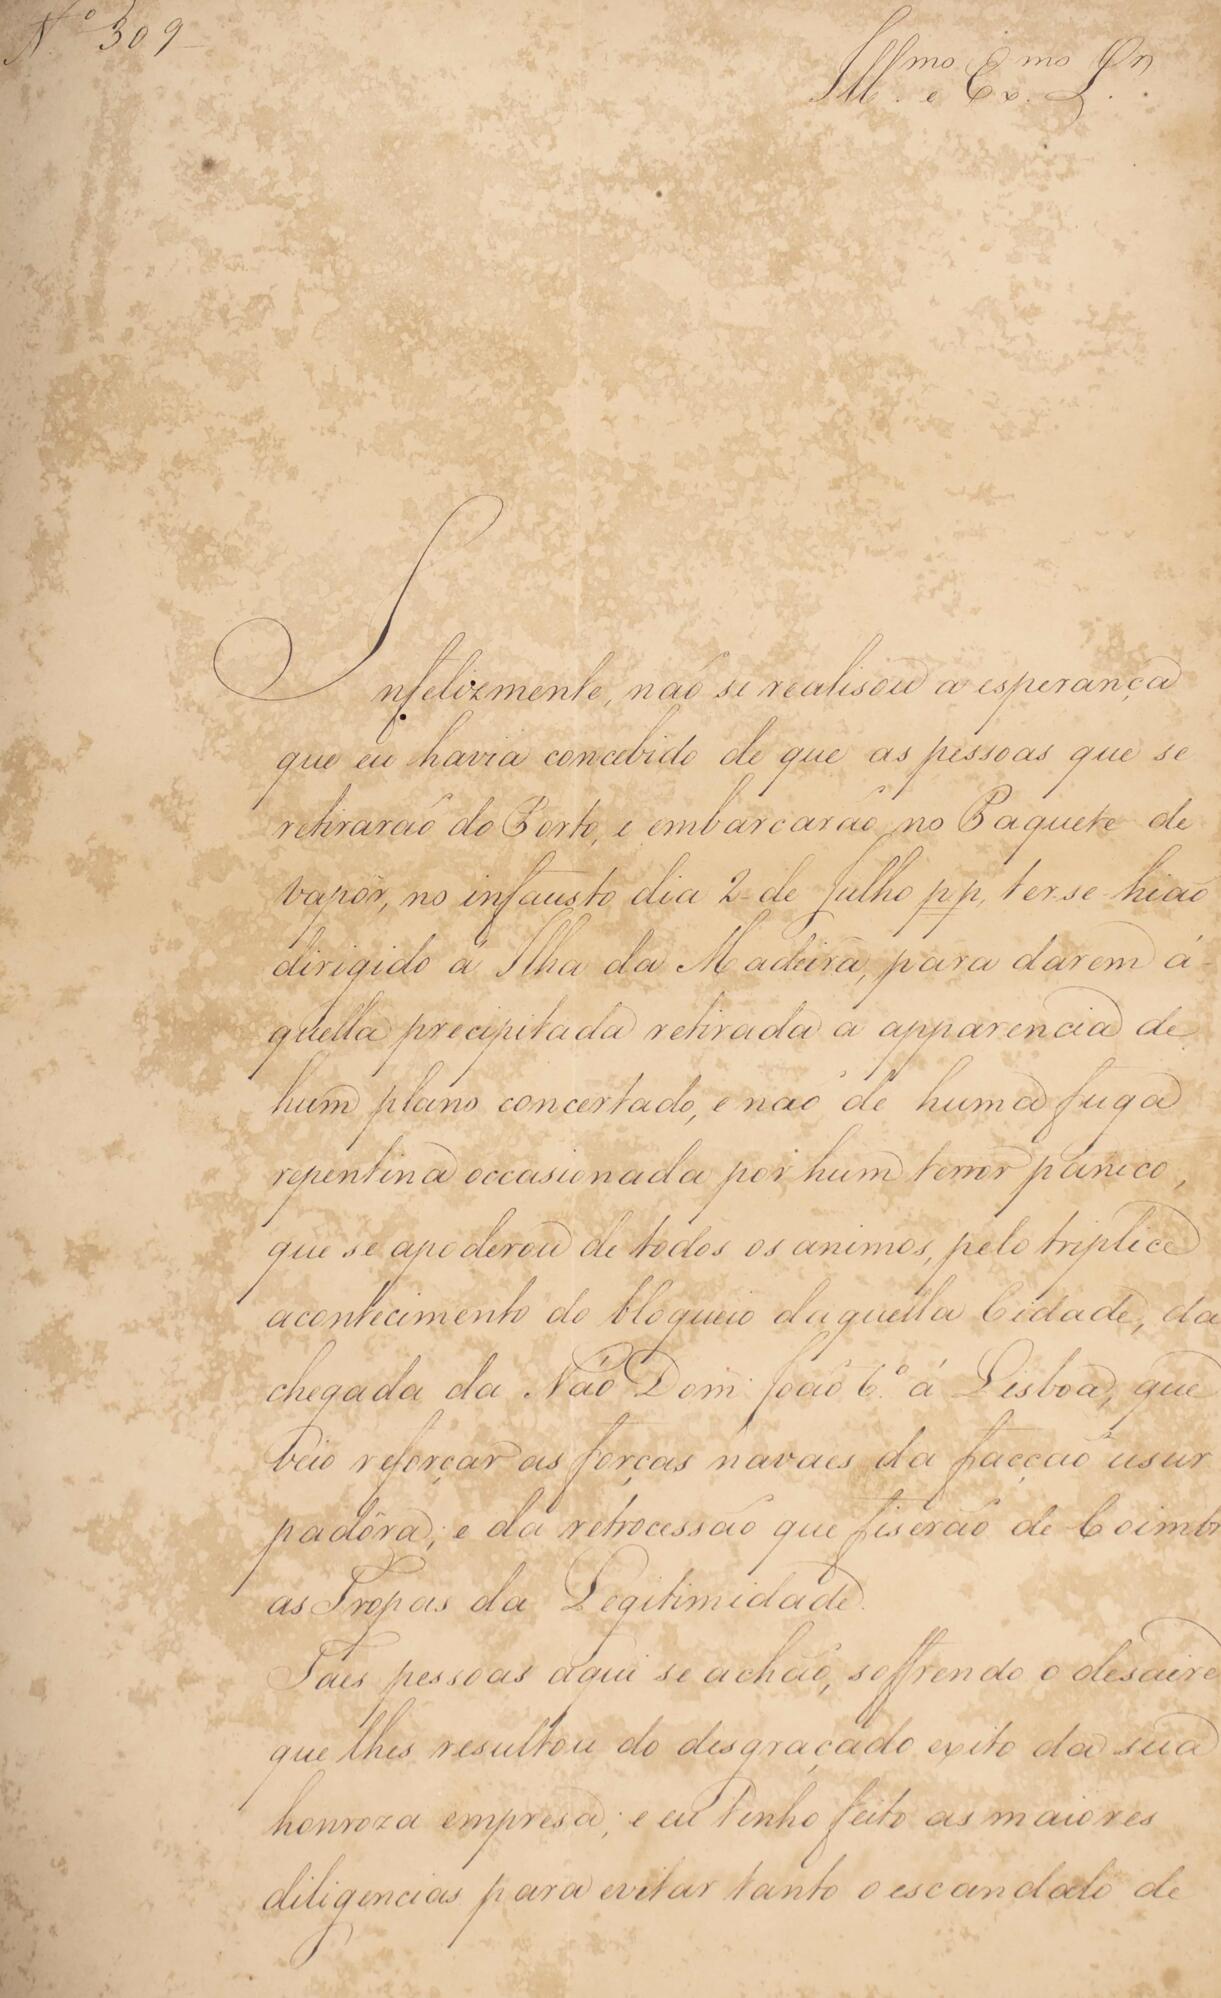 Nº 309
Illmo. e Exmo. Sr.
Infelizmente, não se realisou a esperança
que eu havia concebido de que as pessoas que se
retirarão do Porto, e embarcarão no Paquete de
vapôr, no infausto dia 2 de Julho pp, ter-se-hião
dirigido á Ilha da Madeira, para darem á-
quella precipitada retirada a apparencia de
hum plano concertado, e não de huma fuga
repentina occasionada por hum terror panico,
que se apoderou de todos os animos, pelo triplice
acontecimento do bloqueio daquella Cidade, da
chegada da Náo Dom João 6.º á Lisboa, que
veio reforçar as forças navaes da facção usur
padôra; e da retrocessão que fiserão de Coimbr
as Tropas da Legitimidade.
Taes pessoas aqui se achão, soffrendo o desaire
que lhes resultou do desgraçado exito da sua
honroza empresa; e eu tenho feito as maiores
diligencias para evitar tanto o escandalo de